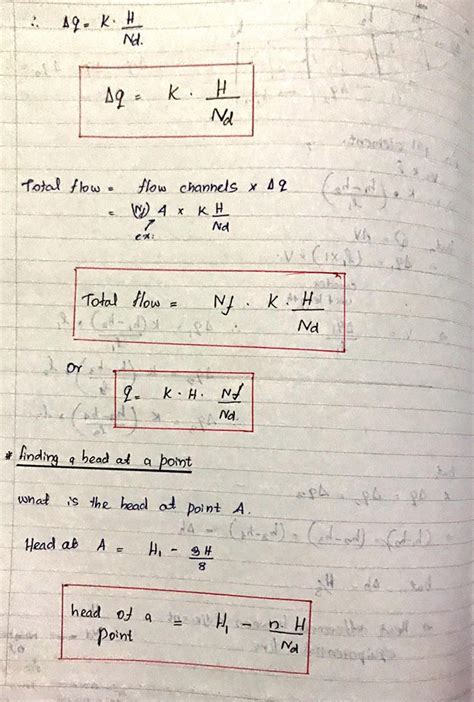 ∴ Δq = K · H/Nd.
Δq = K · H/Nd
Total flow = flow channels × Δq
= (Nf) 4 × K H/Nd
ex:
Total flow = Nf · K · H/Nd
Or
q = K · H · Nf/Nd.
* finding a head at a point
what is the head at point A.
Head at A = H₁ - 3H/8
head of a point = H₁ - n · H/Nd